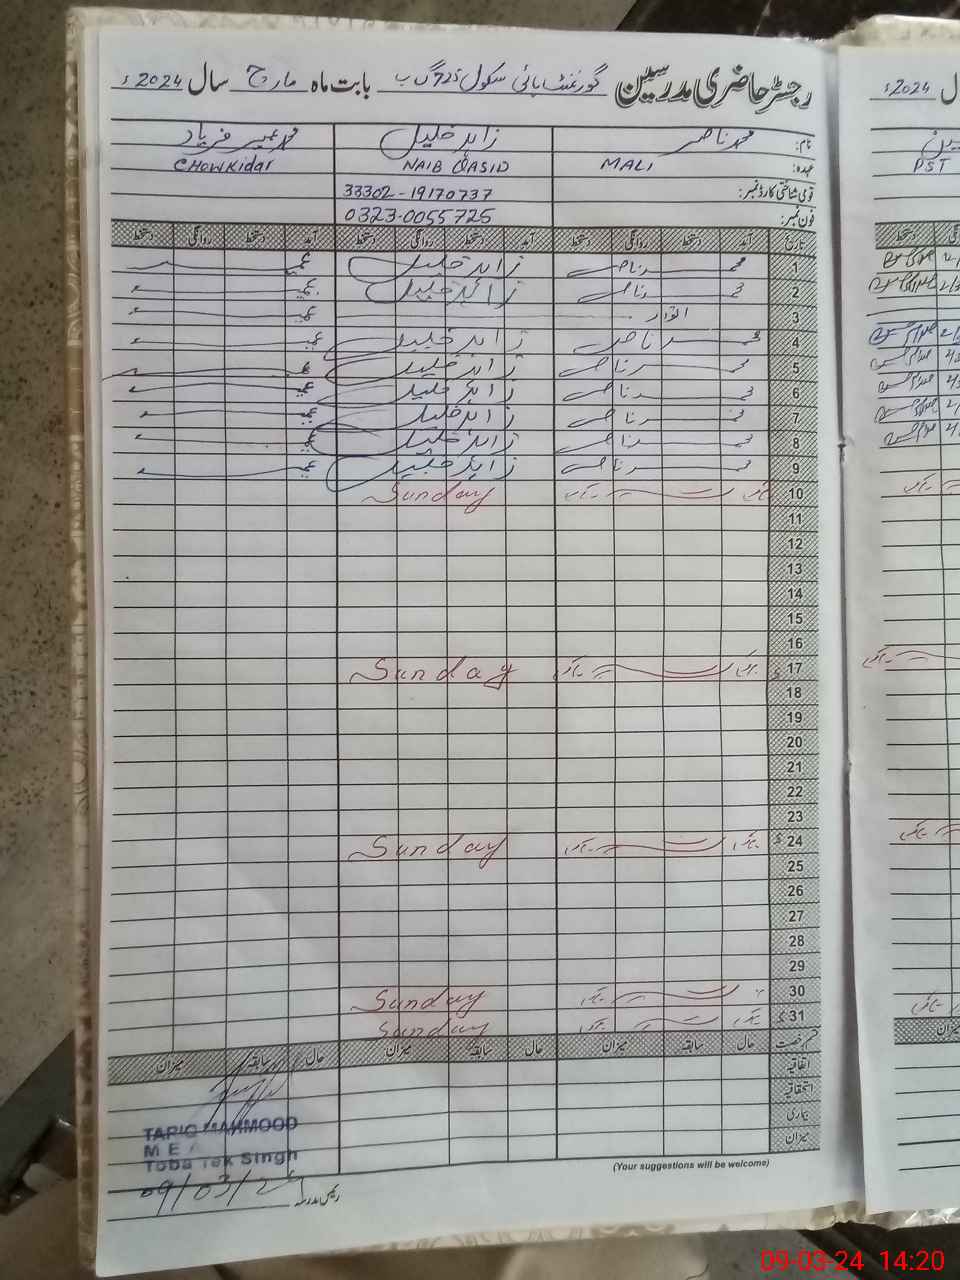 رجسٹر حاضری مدرسین گورنمنٹ ہائی سکول 725 گ ب بابت ماہ مارچ سال 2024ء
نام: محمد ناصر زاہد خلیل محمد عمیر فریاد
عہدہ: MALI NAIB QASID CHOWKIDAR
قومی شناختی کارڈ نمبر: 33302-19170737
فون نمبر: 0323-0055725
تاریخ آمد دستخط روانگی دستخط آمد دستخط روانگی دستخط آمد دستخط روانگی دستخط
1 محمد ناصر زاہد خلیل عمیر
2 محمد ناصر زاہد خلیل عمیر
3 اتوار عمیر
4 محمد ناصر زاہد خلیل عمیر
5 محمد ناصر زاہد خلیل عمیر
6 محمد ناصر زاہد خلیل عمیر
7 محمد ناصر زاہد خلیل عمیر
8 محمد ناصر زاہد خلیل عمیر
9 محمد ناصر زاہد خلیل عمیر
10 Sunday
11
12
13
14
15
16
17 Sunday
18
19
20
21
22
23
24 Sunday
25
26
27
28
29
30 Sunday
31 Sunday
قسم رخصت حال سابقہ میزان حال سابقہ میزان حال سابقہ میزان
اتفاقیہ
استحقاقیہ
بیماری
میزان
TARIQ MAHMOOD
M E A
Toba Tek Singh
09/03/24
رئیس مدرسہ
(Your suggestions will be welcome)
2024ء
PST
09-03-24 14:20